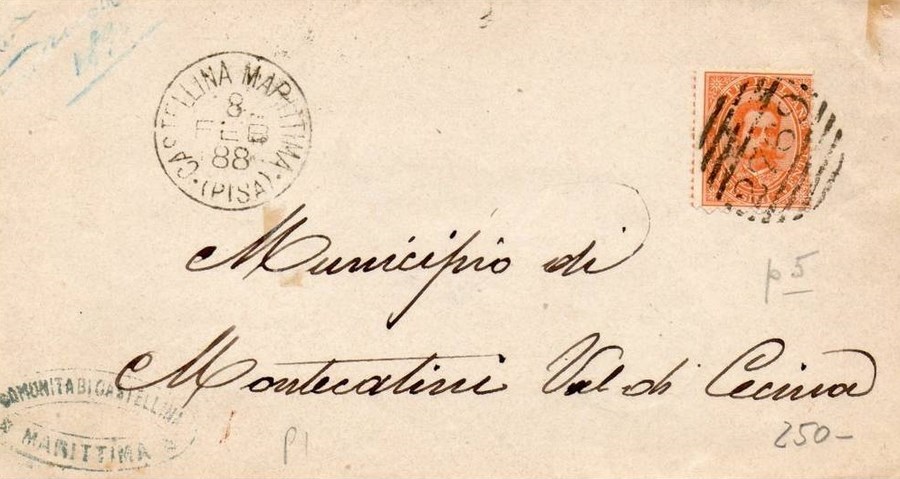 CASTELLINA MARITTIMA
8
FEB
88
(PISA)
Municipio di
Montecatini Val di Cecina
COMUNITA DI CASTELLINA
MARITTIMA
p 5
250-
p1